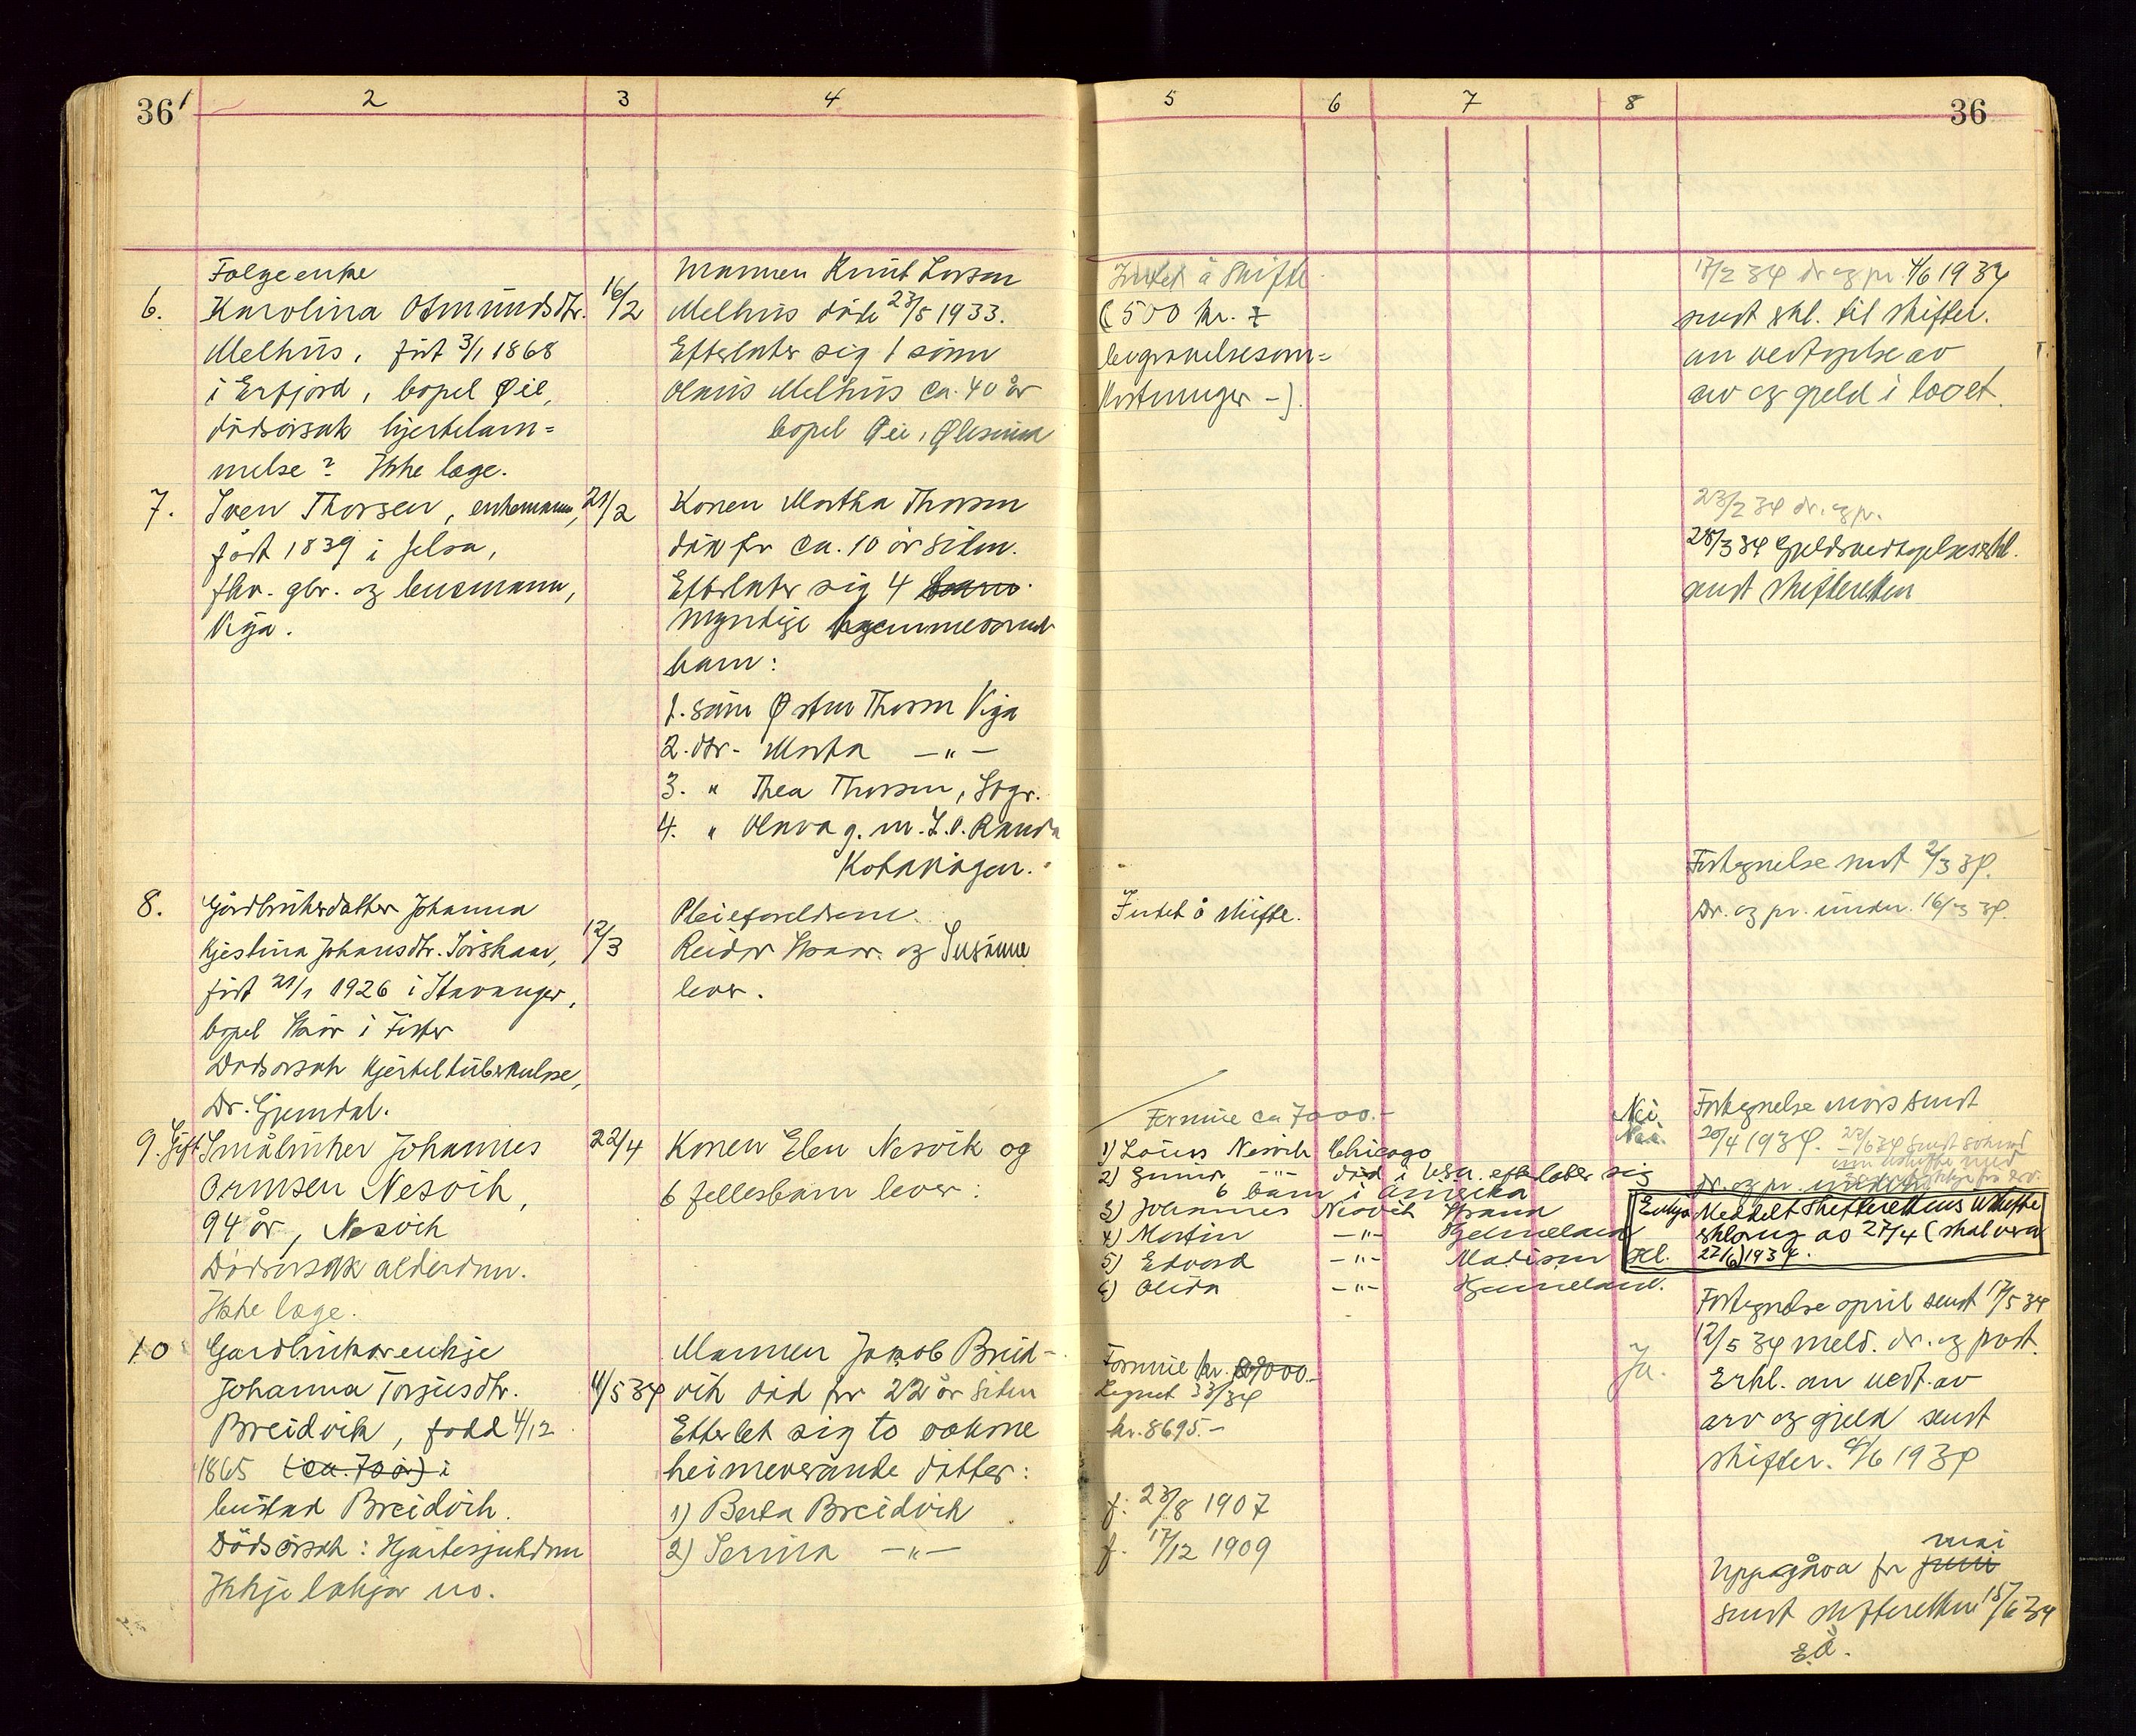 36 1 2 3 4
Følgeenke
6. Karolina Osmundsdtr. 16/2
Melhus, født 3/1 1868
i Erfjord, bopel Øie,
dødsårsak hjertelam=
melse? Ikke læge.
Mannen Knut Larsen
Melhus døde 23/5 1933.
Efterlater sig 1 sønn
Olaus Melhus ca. 40 år
bopel Øie,
7. Sven Thorsen, enkemann, 21/2
født 1839 i Jelsa,
fhv. gbr. og lensmann,
Viga.
Konen Martha Thorsen
død for ca. 10 år siden.
Efterlater sig 4 barn
myndige hjemmeværende
barn:
1. sønn Østen Thorsen Viga
2. dtr. Marta —"—
3. " Thea Thorsen, Svgr.
4. " Olava g. m. L. O. Randa
Kopavågen.
8. Gårdbrukerdatter Johanna
Kjestina Johansdtr. Sørskaar, 12/3
født 21/1 1926 i Stavanger,
bopel Skår i Fister
Dødsårsak kjerteltuberkulose,
Dr. Gjemdal.
Pleieforeldrene
Reidar Skaar og Susanne
lever.
9. Gift Småbruker Johannes 22/4
Ormsen Nesvik,
94 år, Nesvik
Dødsårsak alderdom.
Ikke læge.
Konen Elen Nesvik og
6 fellesbarn lever:
10 Gardbrukarenkje
Johanna Torjusdtr. 11/5 34
Breidvik, fødd 4/12
1865 (ca. 70 år) i
bustad Breidvik.
Dødsårsak: Hjartesjukdom
Ikkje lækjar no.
Mannen Jakob Breid-
vik død for 22 år siden
Etterlet sig to vaksne
heimeverande døtter:
1) Berta Breidvik
2) Serina —"—
5 6 7 8 36
Intet å skifte
(500 kr. t
begravelsesom=
kostninger -).
17/2 34 dr. og pr. 4/6 1934
sendt erkl. til skifter.
om vedtagelse av
arv og gjeld i boet.
23/2 34 dr. og pr.
28/3 34 Gjeldsvedtagelseserkl.
sendt skifteretten
Fortegnelse sendt 2/3 34.
Intet å skifte.
Dr. og pr. under. 16/3 34.
Formue ca 7000.-
Nei
Nei.
Fortegnelse mars sendt
20/4 1934.
1) Louis Nesvik Chicago
2) Gunnar —"— død i USA. efterlater sig
6 barn i Amerika
3) Johannes Nesvik
4) Martin —"— Hjelmeland
5) Edvard —"— Madison
6) Olida —"— Hjelmeland.
dr. og pr.
Enkja Meddelt Skifterettens uskifte
erklæring av 27/4 (skal vera
27/6) 1934.
Fortegnelse april sendt 17/5 34
Ja.
12/5 34 meld. dr. og post.
Erkl. om vedt. av
arv og gjeld sendt
skifter. 4/6 1934
Formue kr. 20000.-
Lignet 33/34
kr. 8695.-
f. 23/8 1907
f. 17/12 1909
mai
Uppgåva for juni
sendt skifteretten 15/6 34
E.Å.